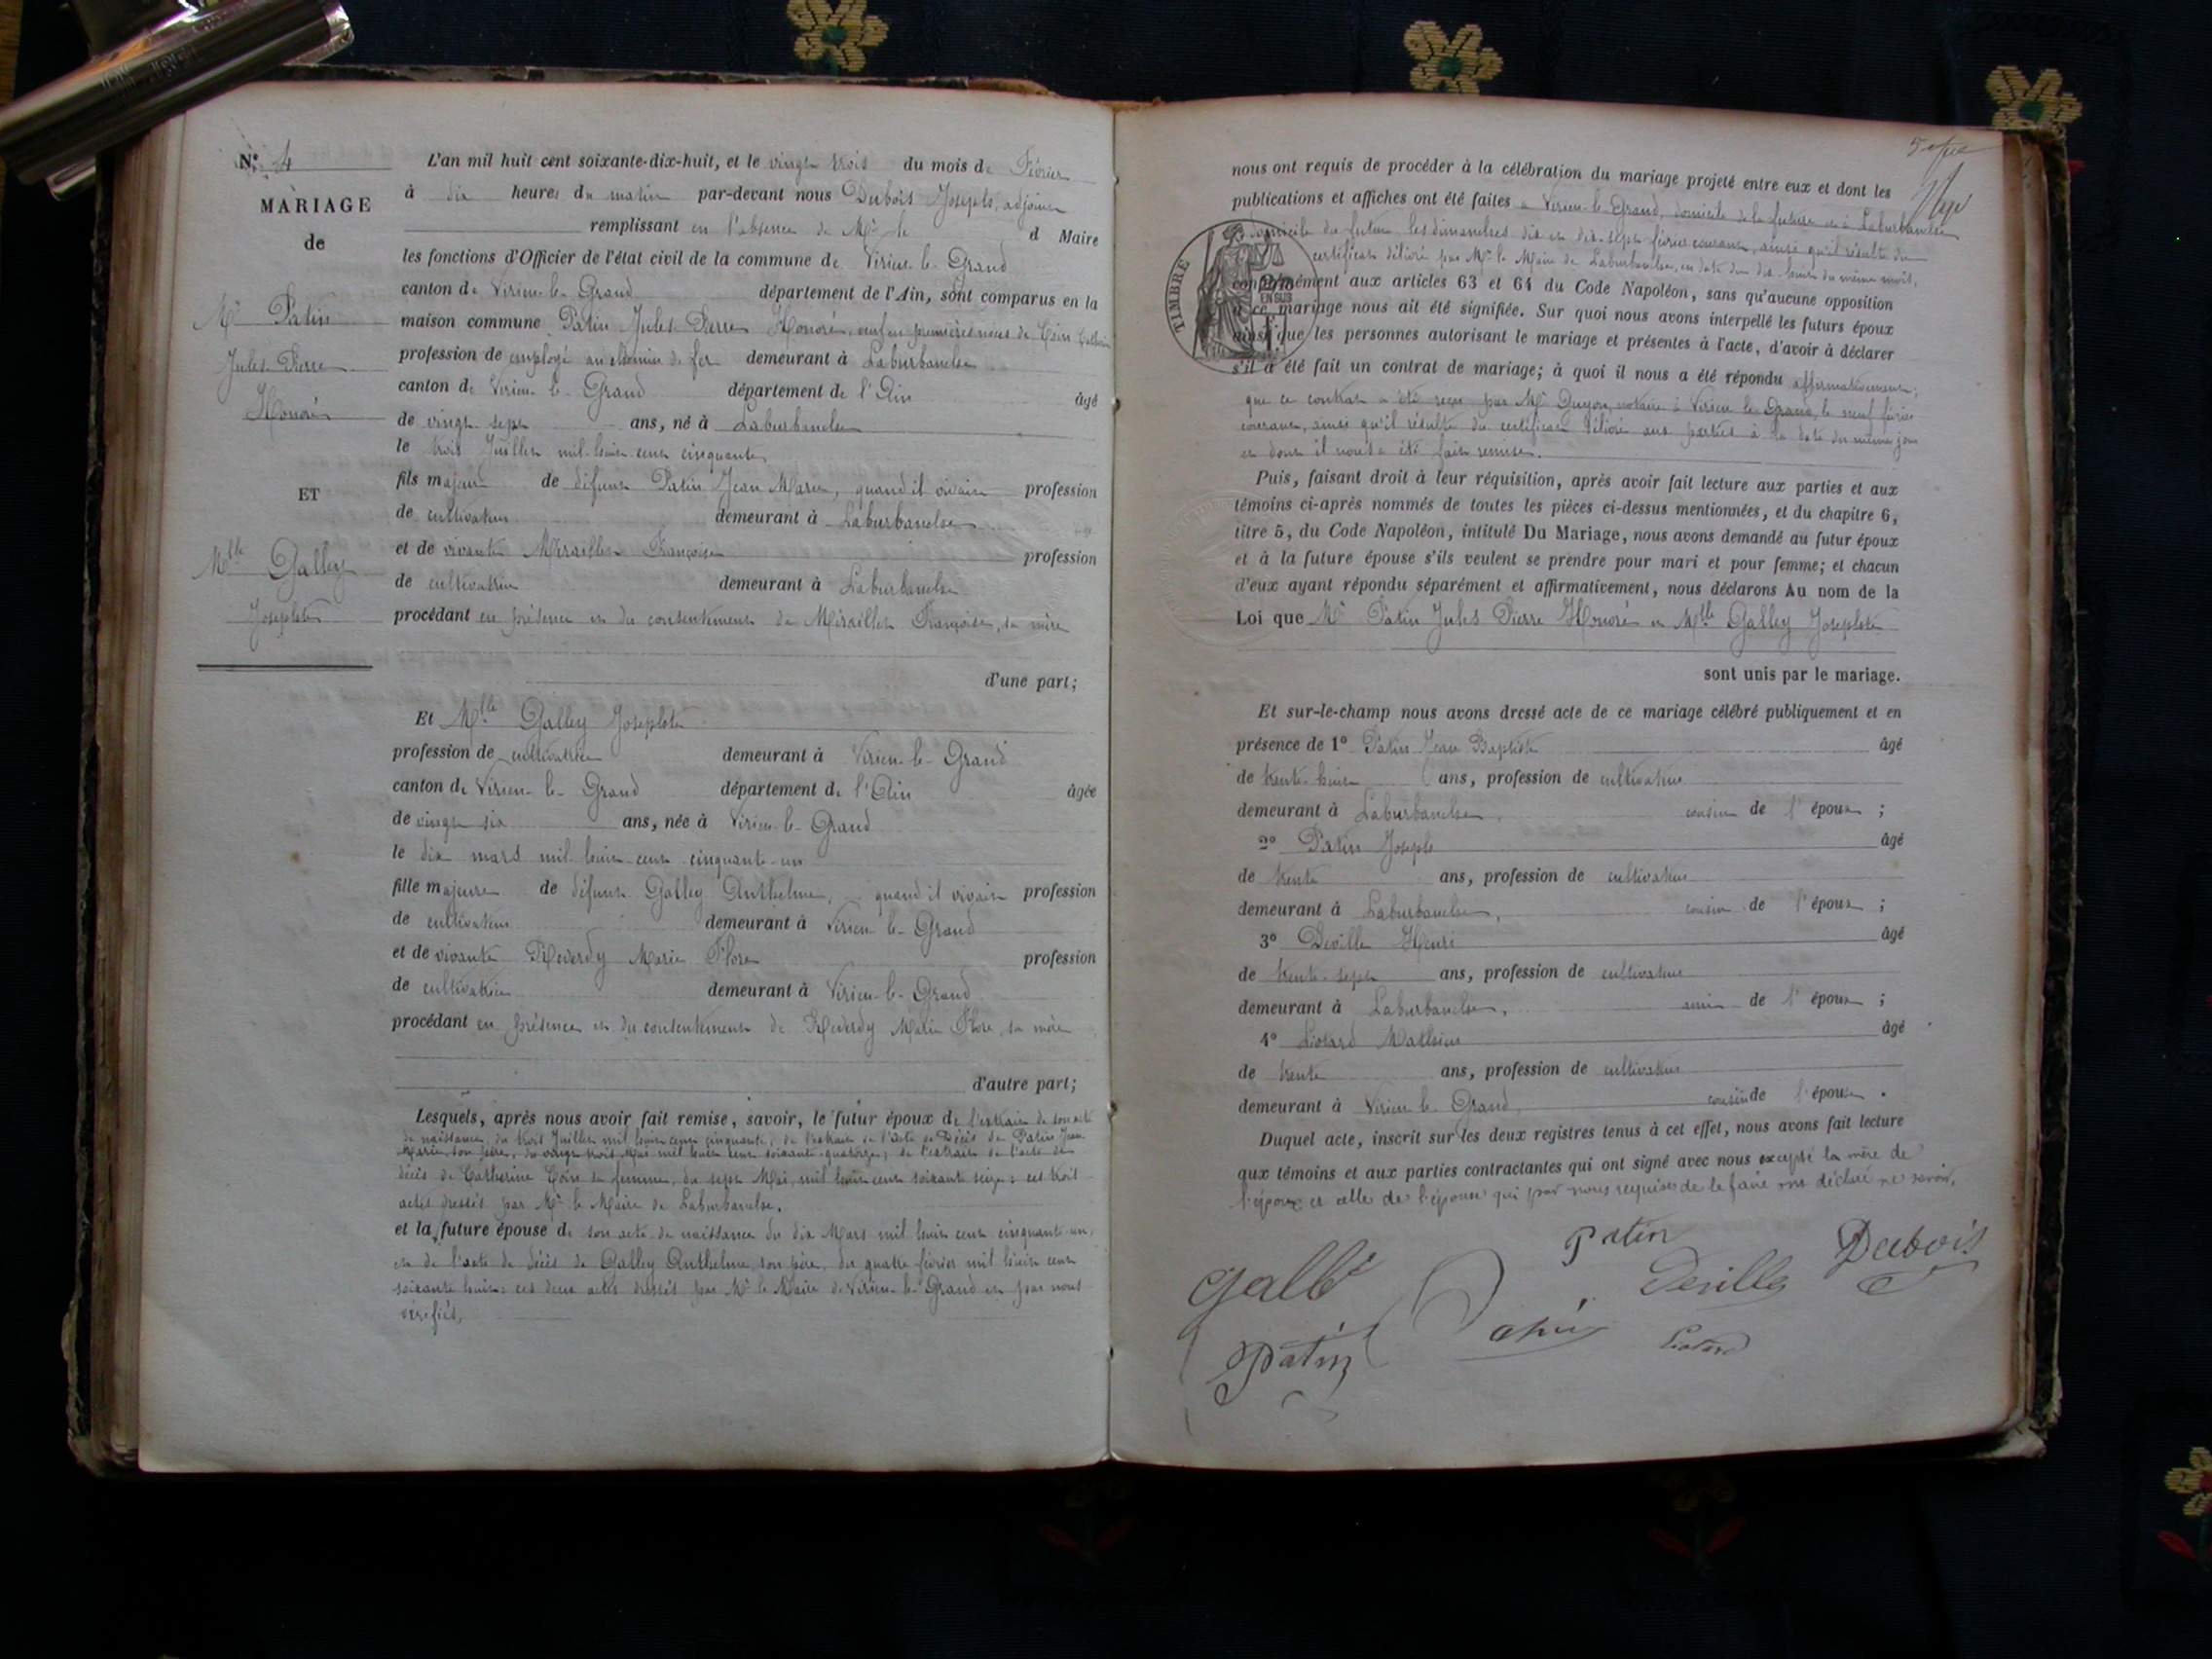 N° 4
MARIAGE
de
Mr Patin
Jules Pierre
Honoré
ET
Mlle Galley
Josephte
L'an mil huit cent soixante-dix-huit, et le vingt trois du mois de Février
à dix heures du matin par-devant nous Dubois Joseph, adjoint
remplissant en l'absence de Mr le d Maire
les fonctions d'Officier de l'état civil de la commune de Virieu-le-Grand
canton de Virieu-le-Grand département de l'Ain, sont comparus en la
maison commune Patin Jules Pierre Honoré, veuf en premières noces de
profession de employé au chemin de fer demeurant à Laburbanche
canton de Virieu-le-Grand département de l'Ain âgé
de vingt sept ans, né à Laburbanche
le trois Juillet mil huit cent cinquante,
fils majeur de défunt Patin Jean Marie, quand il vivait profession
de cultivateur demeurant à Laburbanche
et de vivante Miraillet Françoise profession
de cultivatrice demeurant à Laburbanche
procédant en présence et du consentement de Miraillet Françoise, sa mère
d'une part;
Et Mlle Galley Josephte
profession de cultivatrice demeurant à Virieu-le-Grand
canton de Virieu-le-Grand département de l'Ain âgée
de vingt six ans, née à Virieu-le-Grand
le dix mars mil huit cent cinquante-un
fille majeure de défunt Galley Anthelme, quand il vivait profession
de cultivateur demeurant à Virieu-le-Grand
et de vivante Reverdy Marie Flore profession
de cultivatrice demeurant à Virieu-le-Grand
procédant en présence et du consentement de Reverdy Marie Flore, sa mère
d'autre part;
Lesquels, après nous avoir fait remise, savoir, le futur époux de l'extrait de son acte
de naissance, du trois Juillet mil huit cent cinquante; de l'extrait de l'acte de décès de Patin Jean
Marie, son père, du vingt trois Mai mil huit cent soixante-quatorze; de l'extrait de l'acte de
décès de Catherine sa femme, du sept Mai, mil huit cent soixante seize; ces trois
actes dressés par Mr le Maire de Laburbanche.
et la future épouse de son acte de naissance du dix Mars mil huit cent cinquante-un,
et de l'acte de décès de Galley Anthelme, son père, du quatre février mil huit cent
soixante huit; ces deux actes dressés par Mr le Maire de Virieu-le-Grand et par nous
vérifiés,
nous ont requis de procéder à la célébration du mariage projeté entre eux et dont les
publications et affiches ont été faites à Virieu-le-Grand, domicile de la future et à Laburbanche
domicile du futur, les dimanches dix et dix-sept février courant, ainsi qu'il résulte du
certificat délivré par Mr le Maire de Laburbanche, en date du dix-huit du même mois,
conformément aux articles 63 et 64 du Code Napoléon, sans qu'aucune opposition
à ce mariage nous ait été signifiée. Sur quoi nous avons interpellé les futurs époux
ainsi que les personnes autorisant le mariage et présentes à l'acte, d'avoir à déclarer
s'il a été fait un contrat de mariage; à quoi il nous a été répondu affirmativement;
que ce contrat a été reçu par Me Guyon, notaire à Virieu-le-Grand, le neuf février
courant, ainsi qu'il résulte du certificat délivré aux parties à la date du même jour
et dont il nous a été fait remise.
TIMBRE
EN SUS
Puis, faisant droit à leur réquisition, après avoir fait lecture aux parties et aux
témoins ci-après nommés de toutes les pièces ci-dessus mentionnées, et du chapitre 6,
titre 5, du Code Napoléon, intitulé Du Mariage, nous avons demandé au futur époux
et à la future épouse s'ils veulent se prendre pour mari et pour femme; et chacun
d'eux ayant répondu séparément et affirmativement, nous déclarons Au nom de la
Loi que Mr Patin Jules Pierre Honoré et Mlle Galley Josephte
sont unis par le mariage.
Et sur-le-champ nous avons dressé acte de ce mariage célébré publiquement et en
présence de 1° Patin Jean Baptiste âgé
de trente-huit ans, profession de cultivateur
demeurant à Laburbanche, cousin de l'époux;
2° Patin Joseph âgé
de trente ans, profession de cultivateur
demeurant à Laburbanche, cousin de l'époux;
3° Deville Henri âgé
de trente-sept ans, profession de cultivateur
demeurant à Laburbanche, ami de l'époux;
4° Liotard Mathieu âgé
de trente ans, profession de cultivateur
demeurant à Virieu-le-Grand, cousin de l'épouse.
Duquel acte, inscrit sur les deux registres tenus à cet effet, nous avons fait lecture
aux témoins et aux parties contractantes qui ont signé avec nous excepté la mère de
l'époux et celle de l'épouse qui par nous requises de le faire ont déclaré ne savoir.
Patin
Dubois
Deville
Patin
Liotard